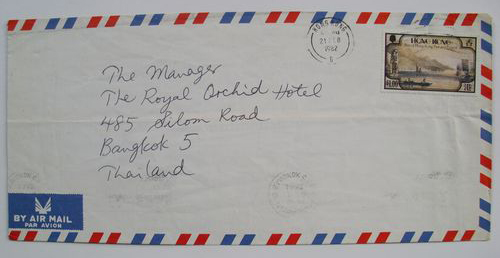 HONG KONG
21 FEB
1982
HONG KONG
The Manager
The Royal Orchid Hotel
485 Silom Road
Bangkok 5
Thailand
BY AIR MAIL
PAR AVION